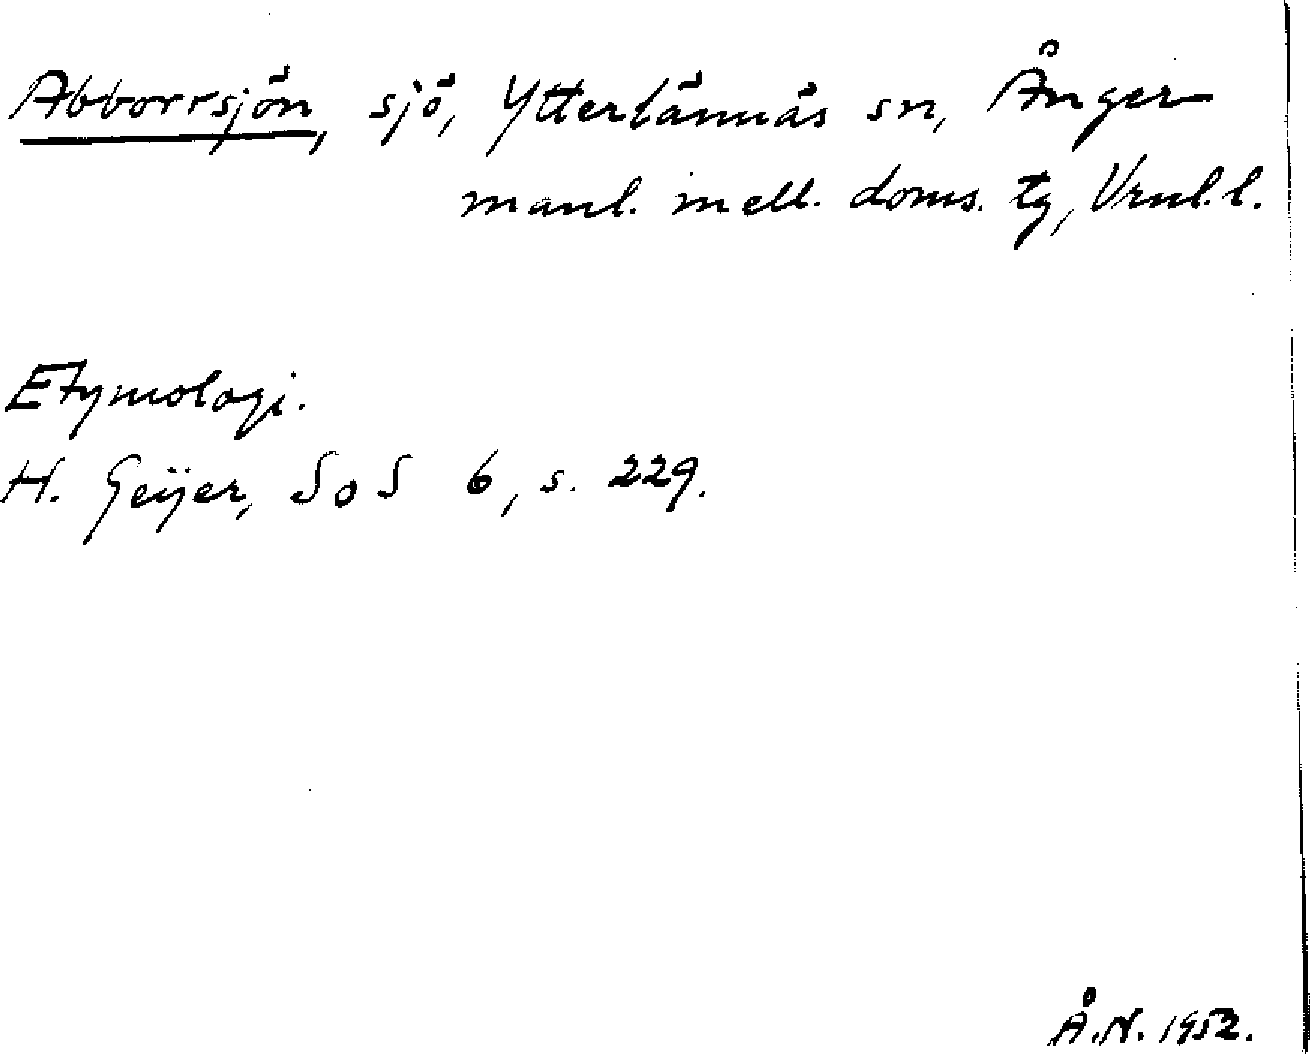 Abborrsjön, sjö, Ytterlännäs sn, Ånger-
manl. mell. doms. tg, Vrnl. l.
Etymologi.
H. Geijer, SoS 6, s. 229.
Å.N. 1952.